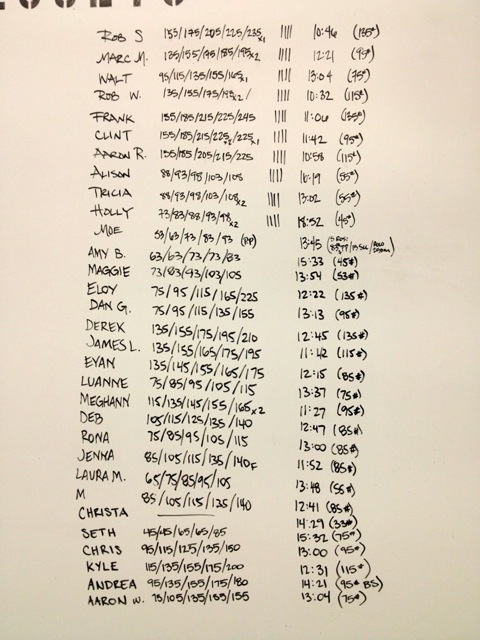 ROB S 155/175/205/225/235x1 |||| 10:46 (135#)
MARC M. 135/155/175/185/195x2 |||| 12:21 (95#)
WALT 95/115/135/155/165x1 |||| 13:04 (75#)
ROB W. 135/155/175/195x2/ |||| 10:32 (115#)
FRANK 155/185/215/225/245 |||| 11:06 (135#)
CLINT 155/185/215/225x2/225x1 |||| 11:42 (95#)
AARON R. 155/185/205/215/225 |||| 10:58 (115#)
ALISON 88/93/98/103/108 |||| 16:19 (55#)
TRICIA 88/93/98/103/108x2 |||| 13:02 (55#)
HOLLY 73/83/88/93/98x2 |||| 18:52 (45#)
MOE 53/63/73/83/93 (PR) 13:45
AMY B. 63/63/73/73/83 15:33 (45#)
MAGGIE 73/83/93/103/105 13:54 (53#)
ELOY 75/95/115/165/225 12:22 (135#)
DAN G. 75/95/115/135/155 13:13 (95#)
DEREK 135/155/175/195/210 12:45 (135#)
JAMES L. 135/155/165/175/195 11:42 (115#)
EVAN 135/145/155/165/175 12:15 (85#)
LUANNE 75/85/95/105/115 13:37 (75#)
MEGHANN 115/135/145/155/165x2 11:27 (95#)
DEB 105/115/125/135/140 12:47 (85#)
RONA 75/85/95/105/115 13:00 (85#)
JENNA 85/105/115/135/140F 11:52 (85#)
LAURA M. 65/75/85/95/105 13:48 (55#)
M 85/105/115/135/140 12:41 (85#)
CHRISTA 14:29 (33#)
SETH 45/45/65/65/85 15:32 (75#)
CHRIS 95/115/125/135/150 13:00 (95#)
KYLE 115/135/155/175/200 12:31 (115#)
ANDREA 95/135/155/175/180 14:21 (95# BS)
AARON W. 75/105/135/155/155 13:04 (75#)